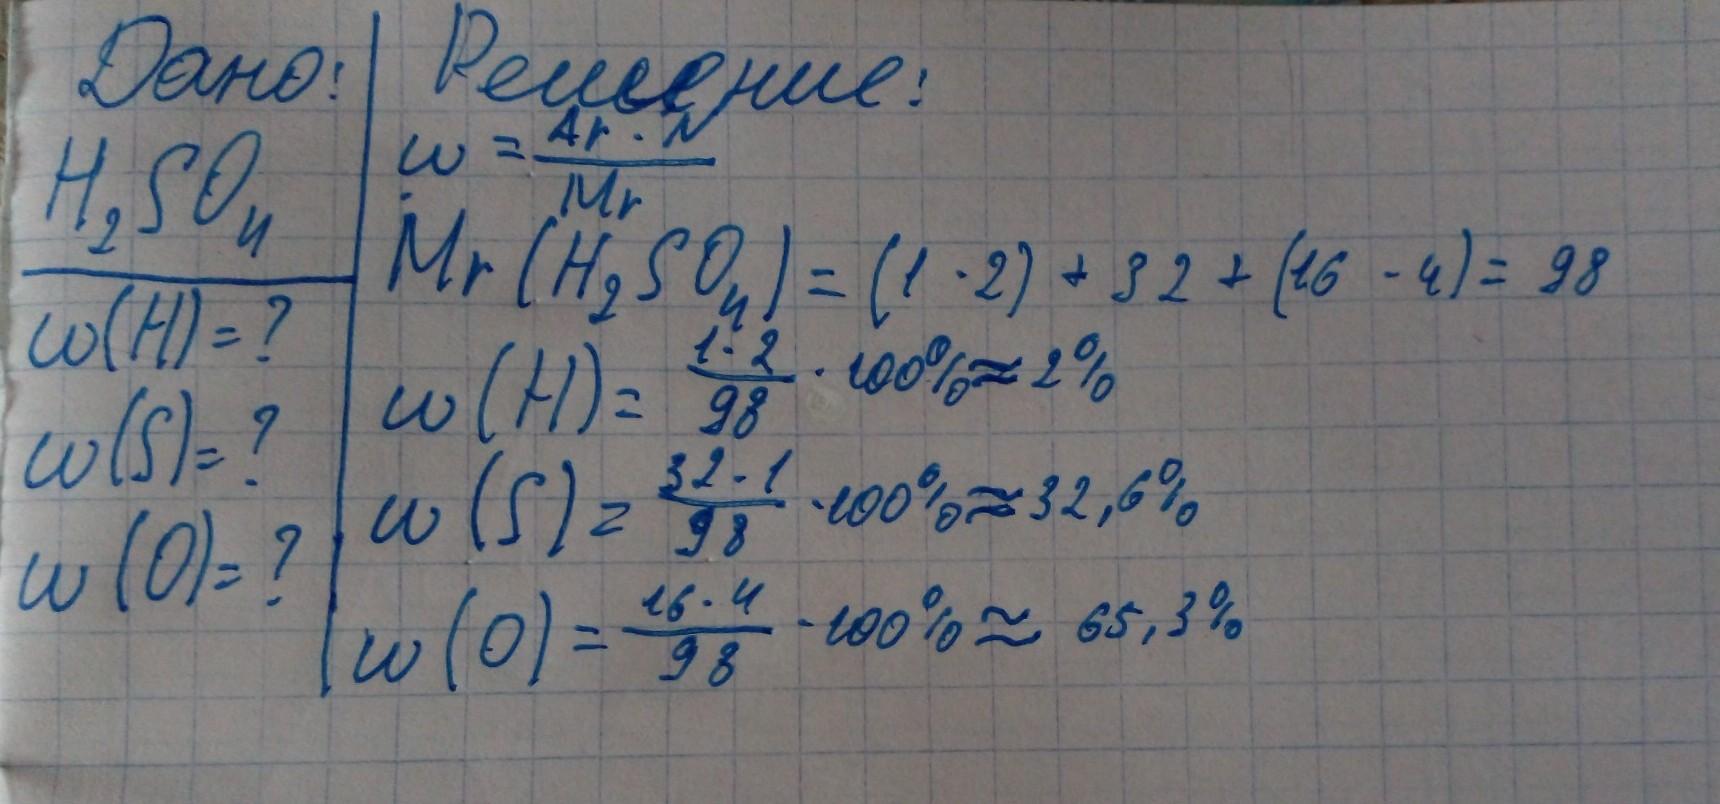 Дано:
H₂SO₄
w(H)=?
w(S)=?
w(O)=?
Решение:
w = Ar · N / Mr
Mr (H₂SO₄) = (1 · 2) + 32 + (16 · 4) = 98
w (H) = 1 · 2 / 98 · 100% ≈ 2%
w (S) = 32 · 1 / 98 · 100% ≈ 32,6%
w (O) = 16 · 4 / 98 · 100% ≈ 65,3%